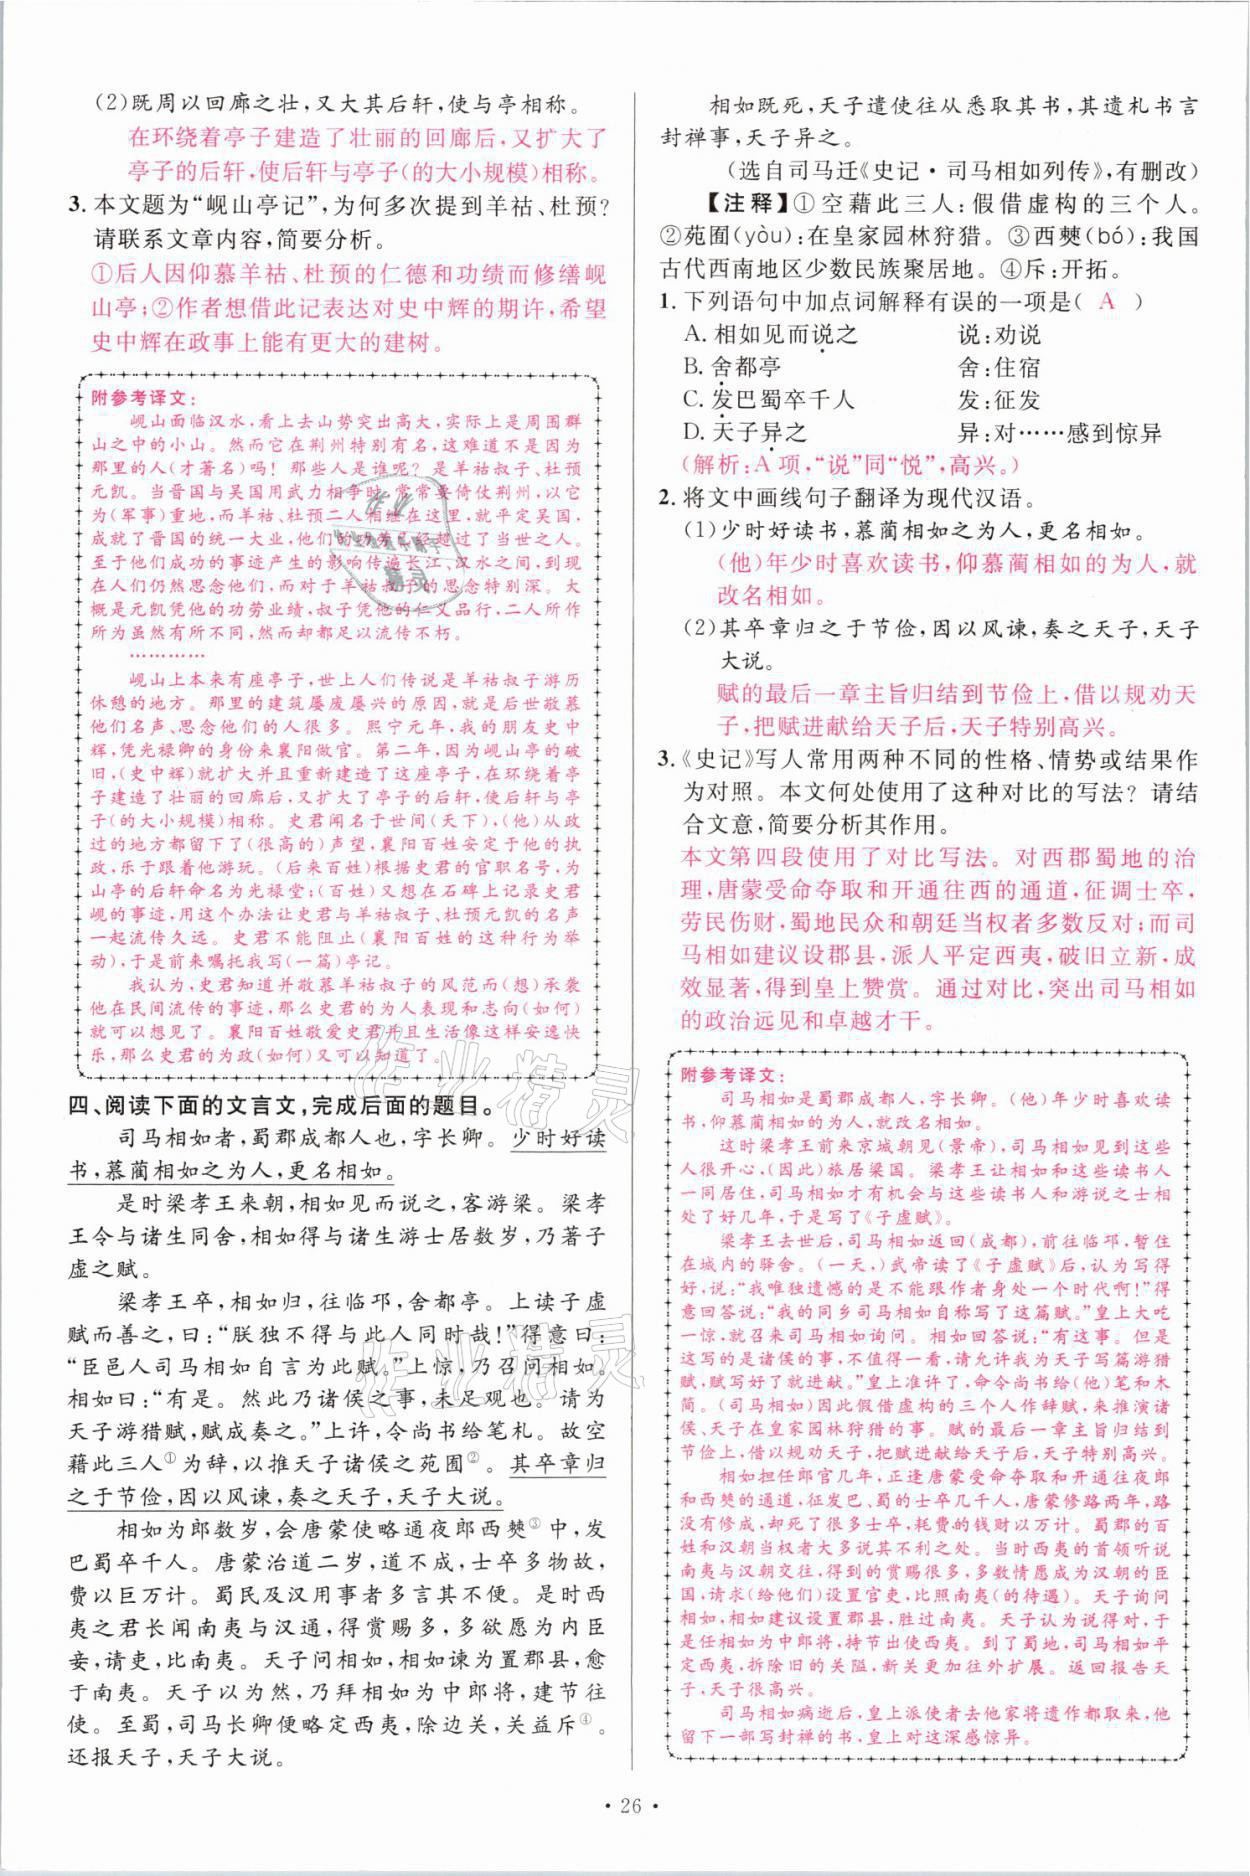 (2)既周以回廊之壮,又大其后轩,使与亭相称。
在环绕着亭子建造了壮丽的回廊后,又扩大了
亭子的后轩,使后轩与亭子(的大小规模)相称。
3. 本文题为“岘山亭记”,为何多次提到羊祜、杜预?
请联系文章内容,简要分析。
①后人因仰慕羊祜、杜预的仁德和功绩而修缮岘
山亭;②作者想借此记表达对史中辉的期许,希望
史中辉在政事上能有更大的建树。
附参考译文:
岘山面临汉水,看上去山势突出高大,实际上是周围群
山之中的小山。然而它在荆州特别有名,这难道不是因为
那里的人(才著名)吗! 那些人是谁呢? 是羊祜叔子、杜预
元凯。当晋国与吴国用武力相争时,常常要倚仗荆州,以它
为(军事)重地,而羊祜、杜预二人相继在这里,就平定吴国,
成就了晋国的统一大业,他们的功劳已经超过了当世之人。
至于他们成功的事迹产生的影响传遍长江、汉水之间,到现
在人们仍然思念他们,而对于羊祜叔子的思念特别深。大
概是元凯凭他的功劳业绩,叔子凭他的仁义品行,二人所作
所为虽然有所不同,然而却都足以流传不朽。
…………
岘山上本来有座亭子,世上人们传说是羊祜叔子游历
休憩的地方。那里的建筑屡废屡兴的原因,就是后世敬慕
他们名声、思念他们的人很多。熙宁元年,我的朋友史中
辉,凭光禄卿的身份来襄阳做官。第二年,因为岘山亭的破
旧,(史中辉)就扩大并且重新建造了这座亭子,在环绕着亭
子建造了壮丽的回廊后,又扩大了亭子的后轩,使后轩与亭
子(的大小规模)相称。史君闻名于世间(天下),(他)从政
过的地方都留下了(很高的)声望,襄阳百姓安定于他的执
政,乐于跟着他游玩。(后来百姓)根据史君的官职名号,为
山亭的后轩命名为光禄堂;(百姓)又想在石碑上记录史君
岘的事迹,用这个办法让史君与羊祜叔子、杜预元凯的名声
一起流传久远。史君不能阻止(襄阳百姓的这种行为举
动),于是前来嘱托我写(一篇)亭记。
我认为,史君知道并敬慕羊祜叔子的风范而(想)承袭
他在民间流传的事迹,那么史君的为人表现和志向(如何)
就可以想见了。襄阳百姓敬爱史君并且生活像这样安逸快
乐,那么史君的为政(如何)又可以知道了。
四、阅读下面的文言文,完成后面的题目。
司马相如者,蜀郡成都人也,字长卿。少时好读
书,慕蔺相如之为人,更名相如。
是时梁孝王来朝,相如见而说之,客游梁。梁孝
王令与诸生同舍,相如得与诸生游士居数岁,乃著子
虚之赋。
梁孝王卒,相如归,往临邛,舍都亭。上读子虚
赋而善之,曰:“朕独不得与此人同时哉!”得意曰:
“臣邑人司马相如自言为此赋。”上惊,乃召问相如。
相如曰:“有是。然此乃诸侯之事,未足观也。请为
天子游猎赋,赋成奏之。”上许,令尚书给笔札。故空
藉此三人①为辞,以推天子诸侯之苑囿②。其卒章归
之于节俭,因以风谏,奏之天子,天子大说。
相如为郎数岁,会唐蒙使略通夜郎西僰③中,发
巴蜀卒千人。唐蒙治道二岁,道不成,士卒多物故,
费以巨万计。蜀民及汉用事者多言其不便。是时西
夷之君长闻南夷与汉通,得赏赐多,多欲愿为内臣
妾,请吏,比南夷。天子问相如,相如谏为置郡县,愈
于南夷。天子以为然,乃拜相如为中郎将,建节往
使。至蜀,司马长卿便略定西夷,除边关,关益斥④。
还报天子,天子大说。
相如既死,天子遣使往从悉取其书,其遗札书言
封禅事,天子异之。
(选自司马迁《史记·司马相如列传》,有删改)
【注释】①空藉此三人:假借虚构的三个人。
②苑囿(yòu):在皇家园林狩猎。③西僰(bó):我国
古代西南地区少数民族聚居地。④斥:开拓。
1. 下列语句中加点词解释有误的一项是( A )
A. 相如见而说之 说:劝说
B. 舍都亭 舍:住宿
C. 发巴蜀卒千人 发:征发
D. 天子异之 异:对……感到惊异
(解析:A 项,“说”同“悦”,高兴。)
2. 将文中画线句子翻译为现代汉语。
(1)少时好读书,慕蔺相如之为人,更名相如。
(他)年少时喜欢读书,仰慕蔺相如的为人,就
改名相如。
(2)其卒章归之于节俭,因以风谏,奏之天子,天子
大说。
赋的最后一章主旨归结到节俭上,借以规劝天
子,把赋进献给天子后,天子特别高兴。
3.《史记》写人常用两种不同的性格、情势或结果作
为对照。本文何处使用了这种对比的写法? 请结
合文意,简要分析其作用。
本文第四段使用了对比写法。对西郡蜀地的治
理,唐蒙受命夺取和开通往西的通道,征调士卒,
劳民伤财,蜀地民众和朝廷当权者多数反对;而司
马相如建议设郡县,派人平定西夷,破旧立新,成
效显著,得到皇上赞赏。通过对比,突出司马相如
的政治远见和卓越才干。
附参考译文:
司马相如是蜀郡成都人,字长卿。(他)年少时喜欢读
书,仰慕蔺相如的为人,就改名相如。
这时梁孝王前来京城朝见(景帝),司马相如见到这些
人很开心,(因此)旅居梁国。梁孝王让相如和这些读书人
一同居住,司马相如才有机会与这些读书人和游说之士相
处了好几年,于是写了《子虚赋》。
梁孝王去世后,司马相如返回(成都),前往临邛,暂住
在城内的驿舍。(一天,)武帝读了《子虚赋》后,认为写得
好,说:“我唯独遗憾的是不能跟作者身处一个时代啊!”得
意回答说:“我的同乡司马相如自称写了这篇赋。”皇上大吃
一惊,就召来司马相如询问。相如回答说:“有这事。但是
这写的是诸侯的事,不值得一看,请允许我为天子写篇游猎
赋,赋写好了就进献。”皇上准许了,命令尚书给(他)笔和木
简。(司马相如)因此假借虚构的三个人作辞赋,来推演诸
侯、天子在皇家园林狩猎的事。赋的最后一章主旨归结到
节俭上,借以规劝天子,把赋进献给天子后,天子特别高兴。
相如担任郎官几年,正逢唐蒙受命夺取和开通往夜郎
和西僰的通道,征发巴、蜀的士卒几千人,唐蒙修路两年,路
没有修成,却死了很多士卒,耗费的钱财以万计。蜀郡的百
姓和汉朝当权者大多说其不利之处。当时西夷的首领听说
南夷与汉朝交往,得到的赏赐很多,多数情愿成为汉朝的臣
国,请求(给他们)设置官吏,比照南夷(的待遇)。天子询问
相如,相如建议设置郡县,胜过南夷。天子认为说得对,于
是任相如为中郎将,持节出使西夷。到了蜀地,司马相如平
定西夷,拆除旧的关隘,新关更加往外扩展。返回报告天
子,天子很高兴。
司马相如病逝后,皇上派使者去他家将遗作都取来,他
留下一部写封禅的书,皇上对这深感惊异。
· 26 ·
作业精灵
作业精灵